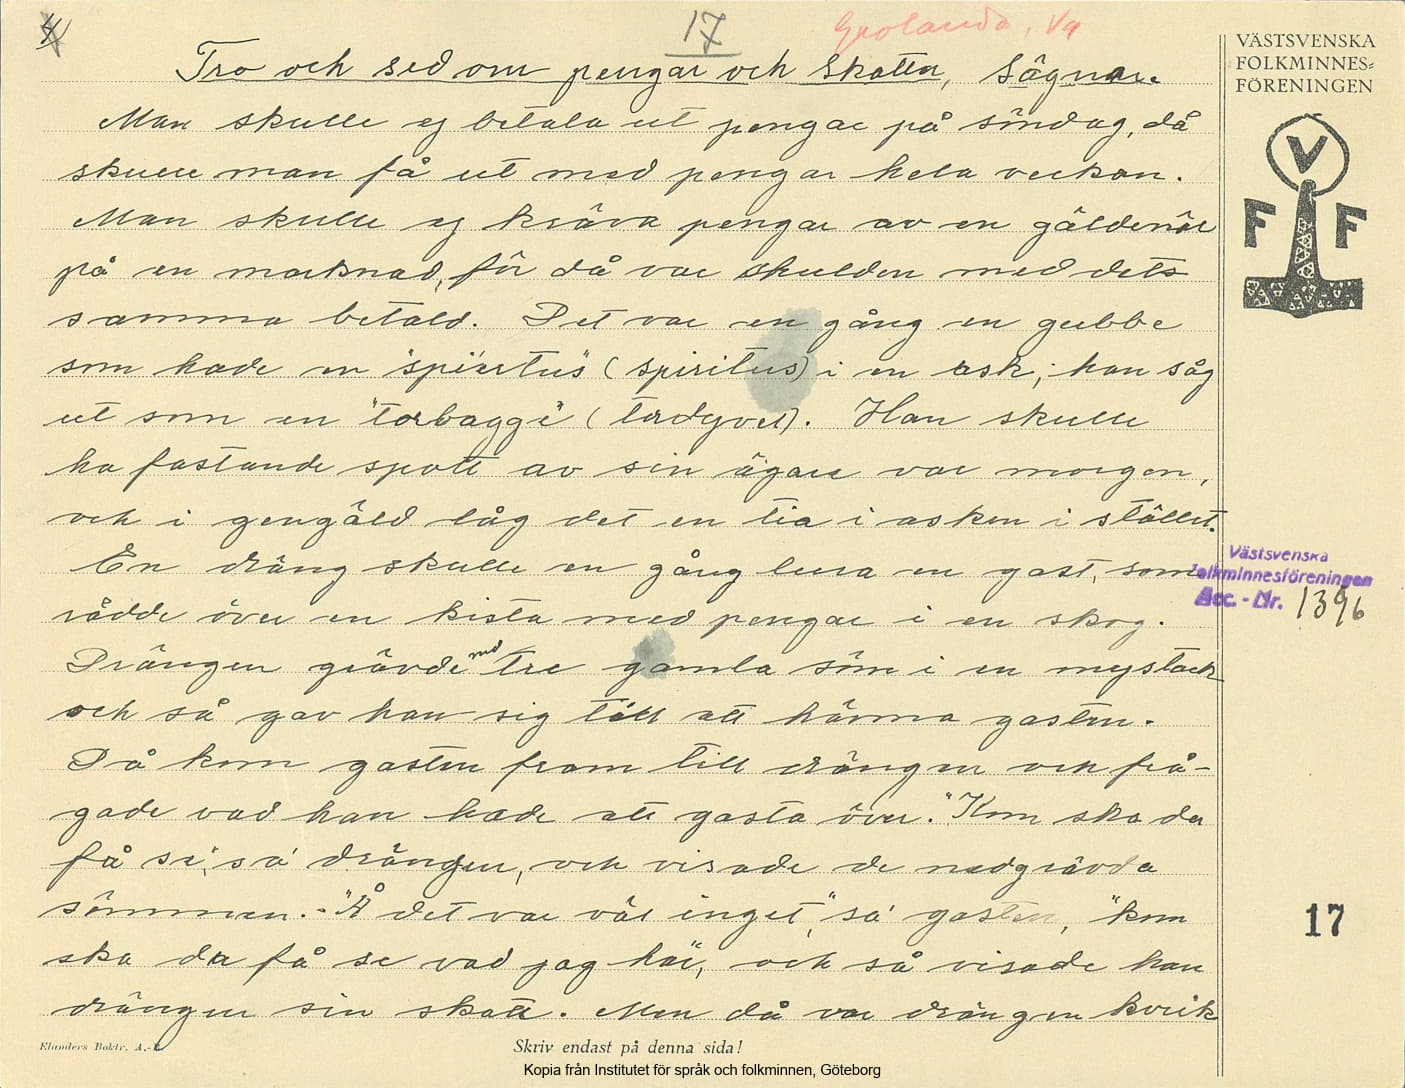 4
17
Grolanda, Vg
VÄSTSVENSKA
FOLKMINNES=
FÖRENINGEN
V
F F
Tro och sed om pengar och skatter, sägner.
Man skulle ej betala ut pengar på söndag, då
skulle man få ut med pengar hela veckan.
Man skulle ej kräva pengar av en gäldenär
på en marknad, för då var skulden med dets
samma betald. Det var en gång en gubbe
som hade en "spirtus" (spiritus) i en ask; han såg
ut som en "torbagge" (tordyvel). Han skulle
ha fastande spott av sin ägare var morgon,
och i gengäld låg det en tia i asken i stället.
En dräng skulle en gång lura en gast, som
rådde över en kista med pengar i en skog.
Drängen grävde med tre gamla söm i en myrstack
och så gav han sig till att härma gasten.
Då kom gasten fram till drängen och frå-
gade vad han hade att gasta över. "Kom ska du
få se", sa' drängen, och visade de nedgrävda
sömmen. - "Å det var väl inget", sa' gasten, "kom
ska du få se vad jag har", och så visade han
drängen sin skatt. Men då var drängen kvick
Västsvenska
folkminnesföreningen
Acc. - Nr. 1396
17
Elanders Boktr. A.-B.
Skriv endast på denna sida!
Kopia från Institutet för språk och folkminnen, Göteborg